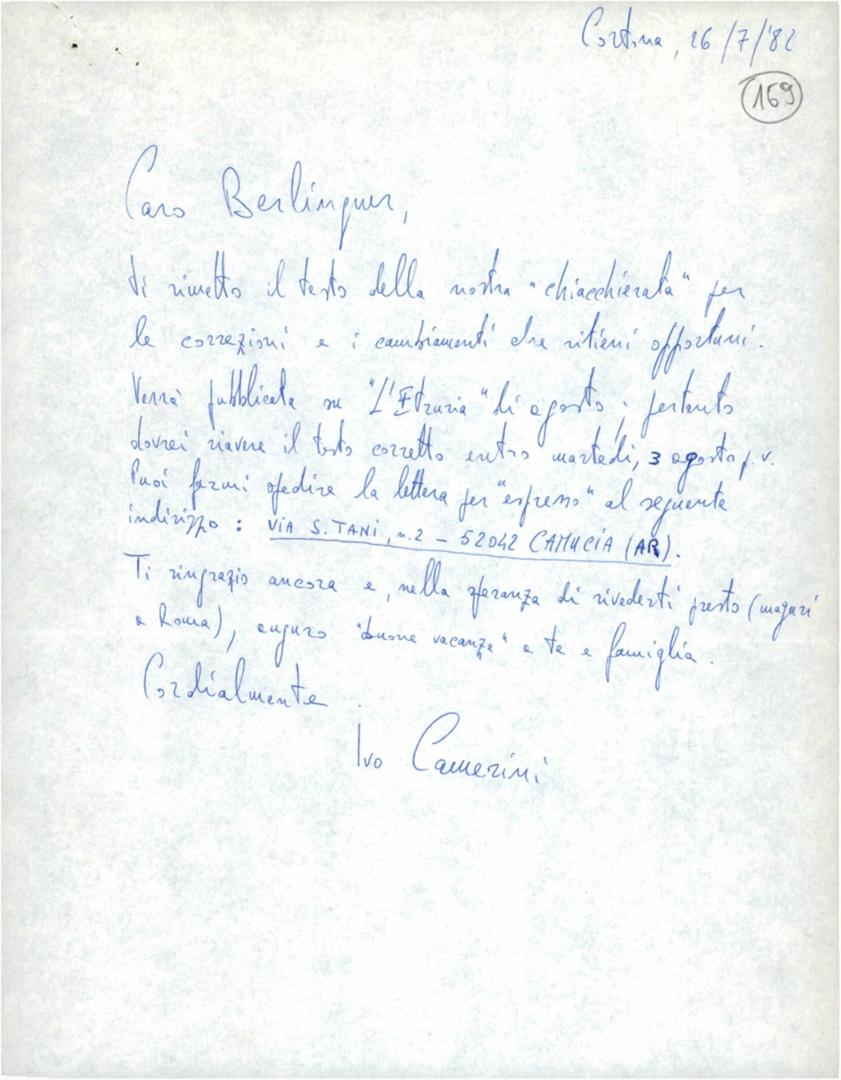 Cortona, 26/7/'82
169
Caro Berlinguer,
ti rimetto il testo della nostra "chiacchierata" per
le correzioni e i cambiamenti che ritieni opportuni.
Verrà pubblicata su "L'Etruria" di agosto; pertanto
dovrei riavere il testo corretto entro martedì, 3 agosto p.v.
Puoi farmi spedire la lettera per "espresso" al seguente
indirizzo: VIA S. TANI, n. 2 - 52042 CAMUCIA (AR).
Ti ringrazio ancora e, nella speranza di rivederti presto (magari
a Roma), auguro "buone vacanze" a te e famiglia.
Cordialmente
Ivo Camerini